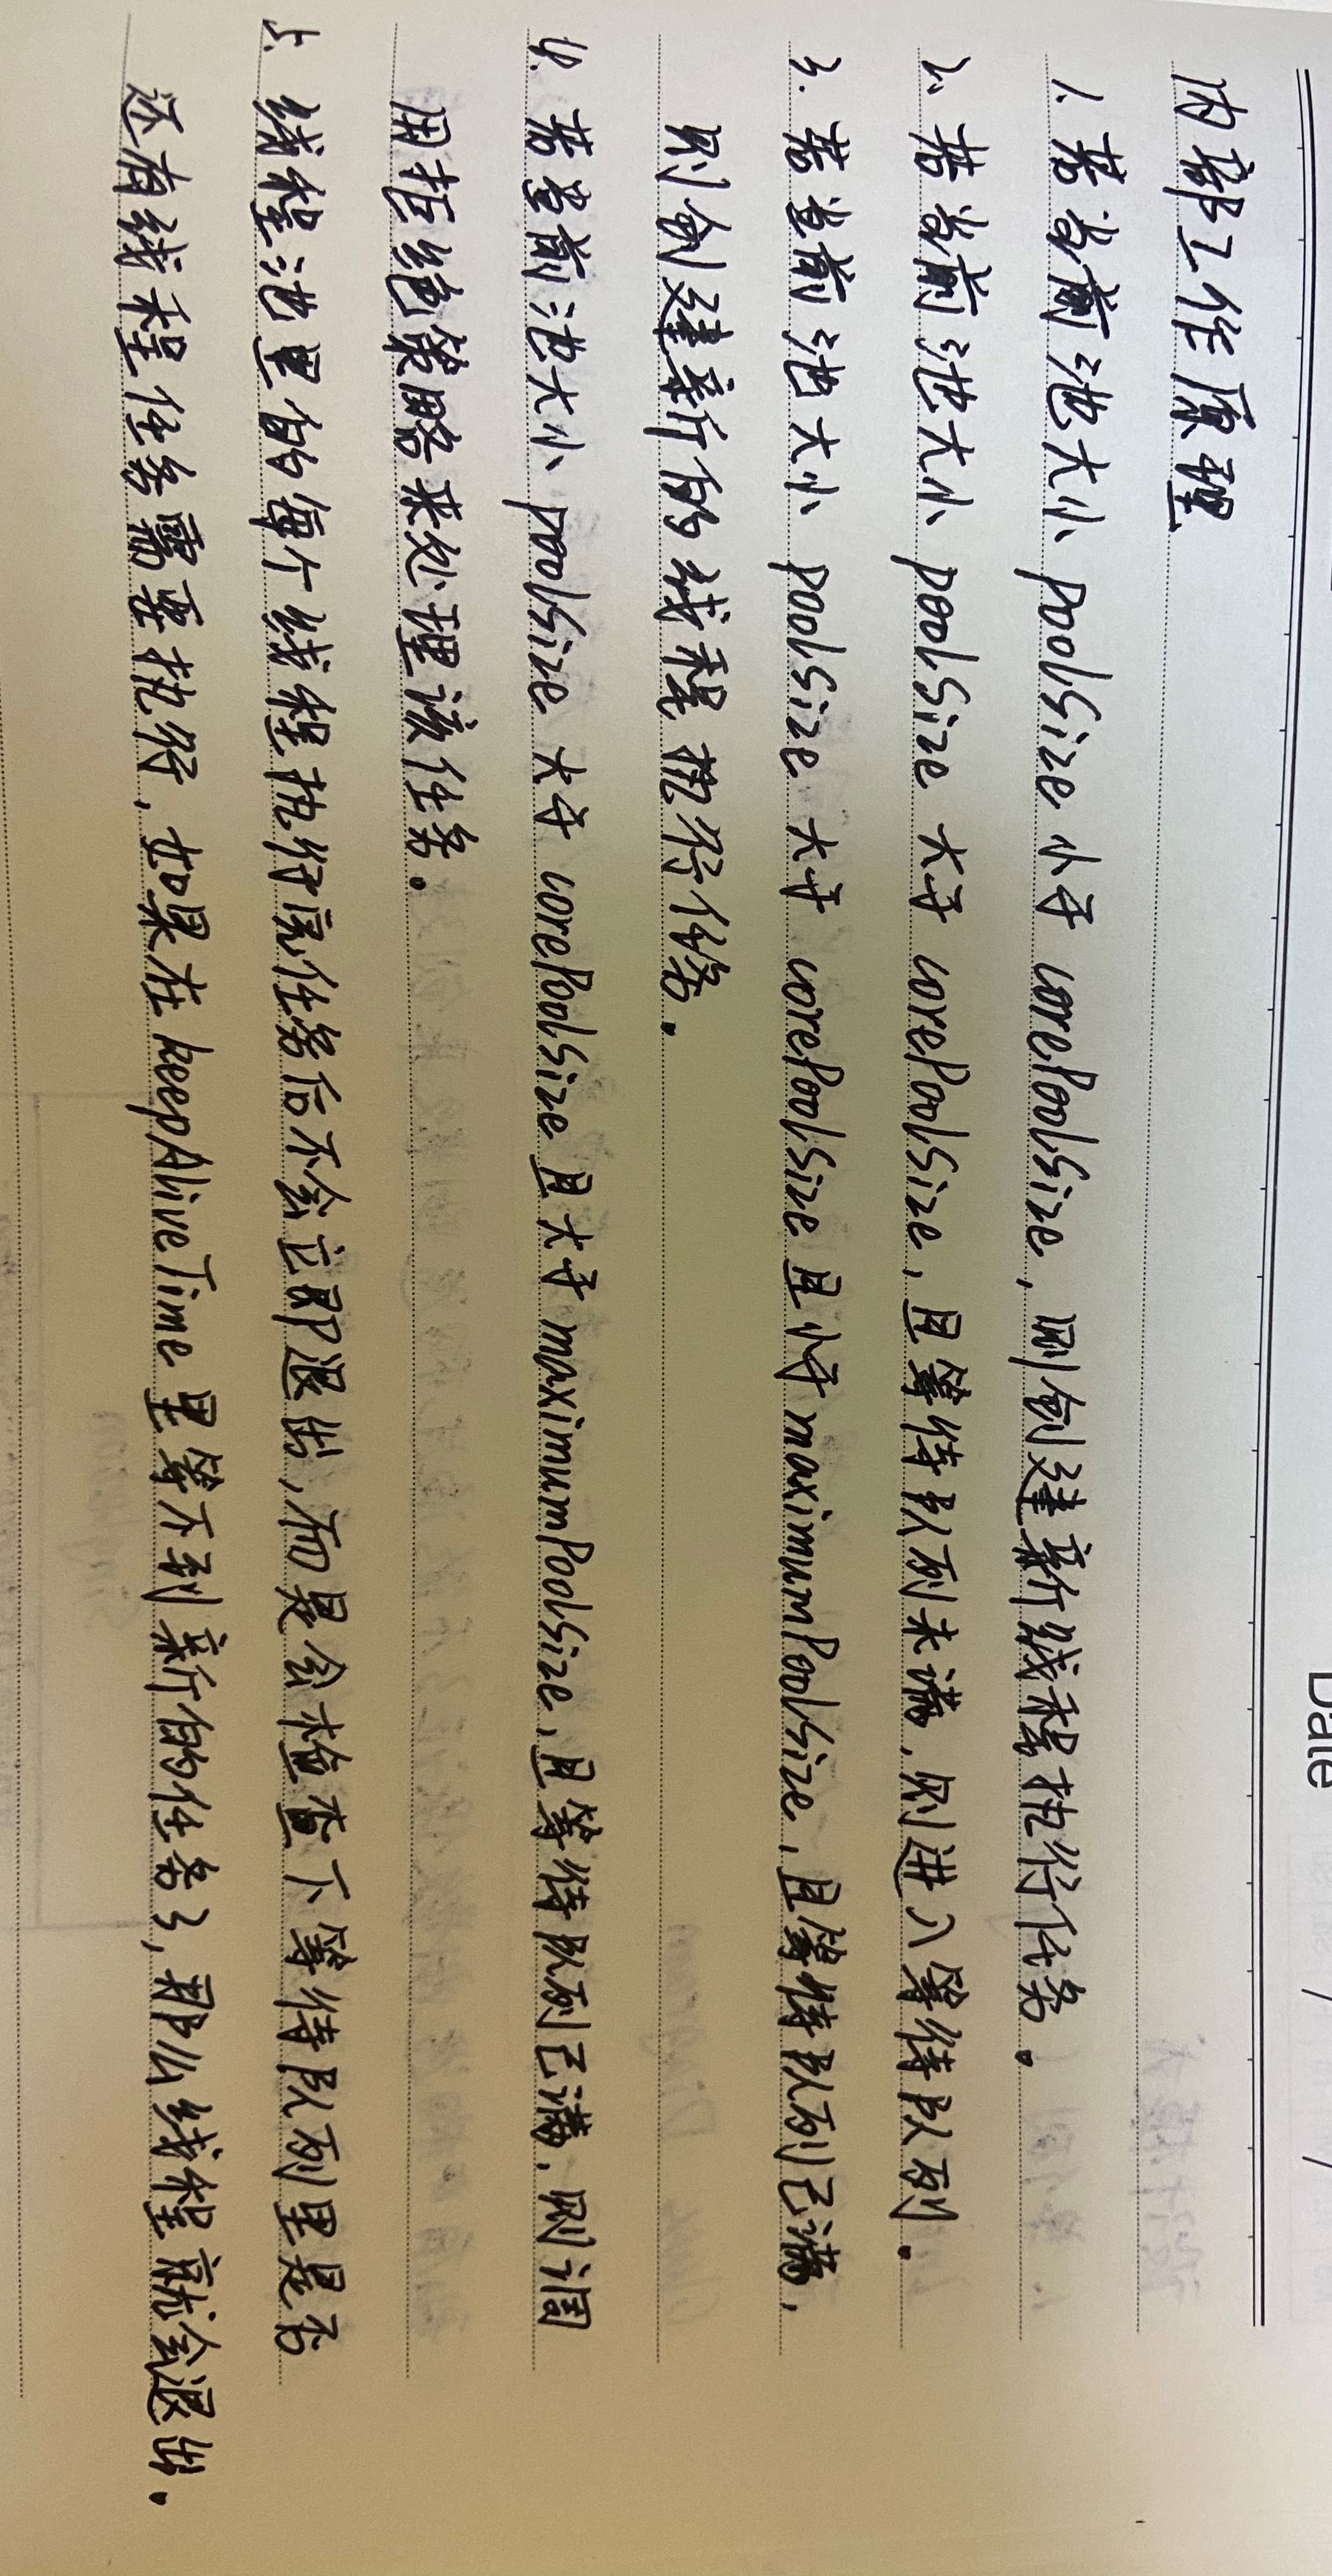 Date / /
内部工作原理
1. 若当前池大小 poolSize 小于 corePoolSize, 则创建新线程执行任务.
2. 若当前池大小 poolSize 大于 corePoolSize, 且等待队列未满, 则进入等待队列.
3. 若当前池大小 poolSize 大于 corePoolSize 且小于 maximumPoolSize, 且等待队列已满,
则创建新的线程执行任务.
4. 若当前池大小 poolSize 大于 corePoolSize 且大于 maximumPoolSize, 且等待队列已满, 则调
用拒绝策略来处理该任务.
5. 线程池里的每个线程执行完任务后不会立即退出, 而是会检查下等待队列里是否
还有线程任务需要执行, 如果在 keepAliveTime 里等不到新的任务了, 那么线程就会退出.